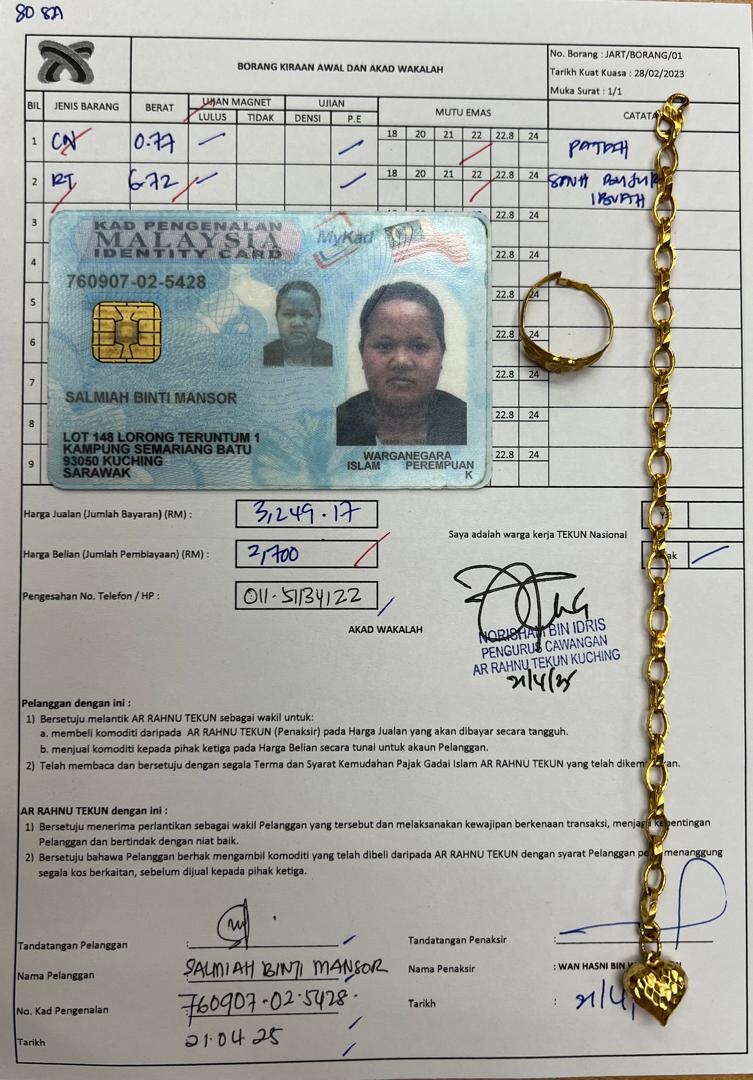 80 82A
BORANG KIRAAN AWAL DAN AKAD WAKALAH
No. Borang : JART/BORANG/01
Tarikh Kuat Kuasa : 28/02/2023
Muka Surat : 1/1
BIL JENIS BARANG BERAT UJIAN MAGNET UJIAN MUTU EMAS CATATA
LULUS TIDAK DENSI P.E
1 CN 0.77 18 20 21 22 22.8 24 PATAH
2 RT 6.72 18 20 21 22 22.8 24
1 BUAH
3 22.8 24
4 22.8 24
5 22.8 24
6 22.8 24
7 22.8 24
8 22.8 24
9 22.8 24
KAD PENGENALAN
MALAYSIA
IDENTITY CARD
MyKad
760907-02-5428
SALMIAH BINTI MANSOR
LOT 148 LORONG TERUNTUM 1
KAMPUNG SEMARIANG BATU
93050 KUCHING
SARAWAK
WARGANEGARA
ISLAM PEREMPUAN
K
Harga Jualan (Jumlah Bayaran) (RM) : 3,249.17
Saya adalah warga kerja TEKUN Nasional
Harga Belian (Jumlah Pembiayaan) (RM) : 2,700
Pengesahan No. Telefon / HP : 011-51134122
AKAD WAKALAH
NORISHAM BIN IDRIS
PENGURUS CAWANGAN
AR RAHNU TEKUN KUCHING
21/4/25
Pelanggan dengan ini :
1) Bersetuju melantik AR RAHNU TEKUN sebagai wakil untuk:
a. membeli komoditi daripada AR RAHNU TEKUN (Penaksir) pada Harga Jualan yang akan dibayar secara tangguh.
b. menjual komoditi kepada pihak ketiga pada Harga Belian secara tunai untuk akaun Pelanggan.
2) Telah membaca dan bersetuju dengan segala Terma dan Syarat Kemudahan Pajak Gadai Islam AR RAHNU TEKUN yang telah dikem an.
AR RAHNU TEKUN dengan ini :
1) Bersetuju menerima perlantikan sebagai wakil Pelanggan yang tersebut dan melaksanakan kewajipan berkenaan transaksi, menjaga kepentingan
Pelanggan dan bertindak dengan niat baik.
2) Bersetuju bahawa Pelanggan berhak mengambil komoditi yang telah dibeli daripada AR RAHNU TEKUN dengan syarat Pelanggan pe menanggung
segala kos berkaitan, sebelum dijual kepada pihak ketiga.
Tandatangan Pelanggan : Tandatangan Penaksir :
Nama Pelanggan : SALMIAH BINTI MANSOR Nama Penaksir : WAN HASNI BIN
No. Kad Pengenalan : 760907-02-5428 Tarikh : 21/4/
Tarikh : 21.04.25